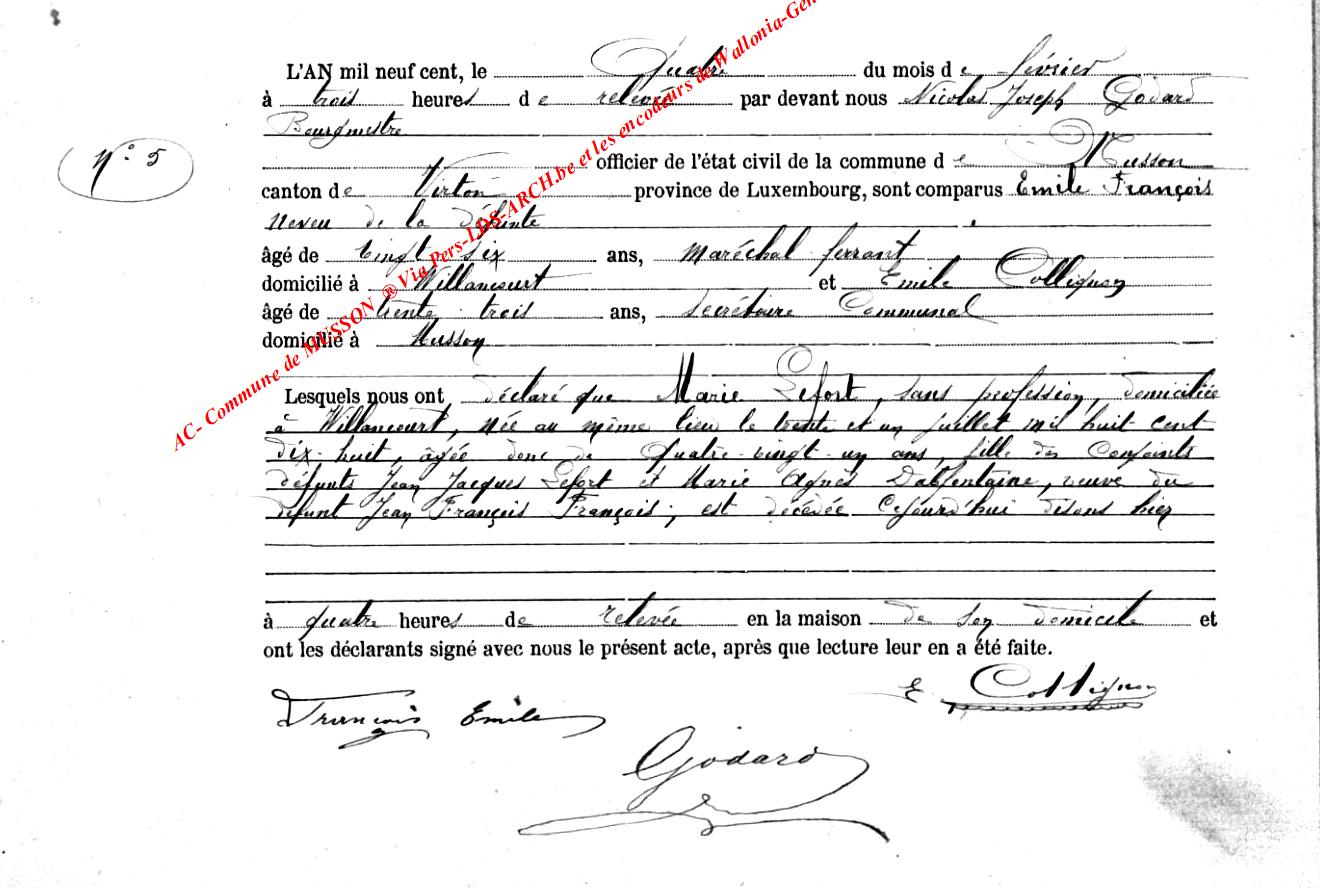 L'AN mil neuf cent, le Quatre du mois de février
à trois heures de relevée par devant nous Nicolas Joseph Godard
Bourgmestre
N° 5
officier de l'état civil de la commune de Musson
canton de Virton province de Luxembourg, sont comparus Emile François
neveu de la défunte
âgé de vingt six ans, maréchal ferrant
domicilié à Willancourt et Emile Collignon
âgé de trente trois ans, secrétaire Communal
domicilié à Musson
Lesquels nous ont déclaré que Marie Lefort, sans profession, domiciliée
à Willancourt, née au même lieu le trente et un juillet mil huit cent
dix-huit, âgée donc de Quatre-vingt-un ans, fille des Conjoints
défunts Jean Jacques Lefort et Marie Agnès Dabfontaine, veuve du
défunt Jean François François ; est décédée Cejourd'hui disons hier
à quatre heures de relevée en la maison de son domicile et
ont les déclarants signé avec nous le présent acte, après que lecture leur en a été faite.
E Collignon
François Emile
Godard
AC- Commune de MUSSON ® Via Pers-LDS-ARCH.be et les encodeurs de Wallonia-Gen